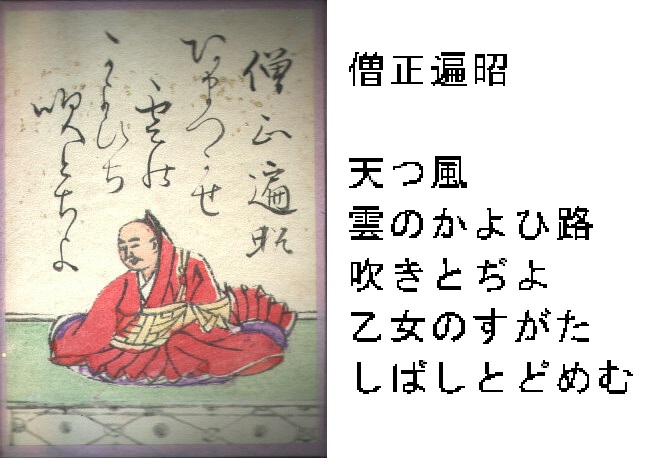 僧正遍昭
あまつかせ
雲の
かよひち
吹とちよ
僧正遍昭
天つ風
雲のかよひ路
吹きとぢよ
乙女のすがた
しばしとどめむ